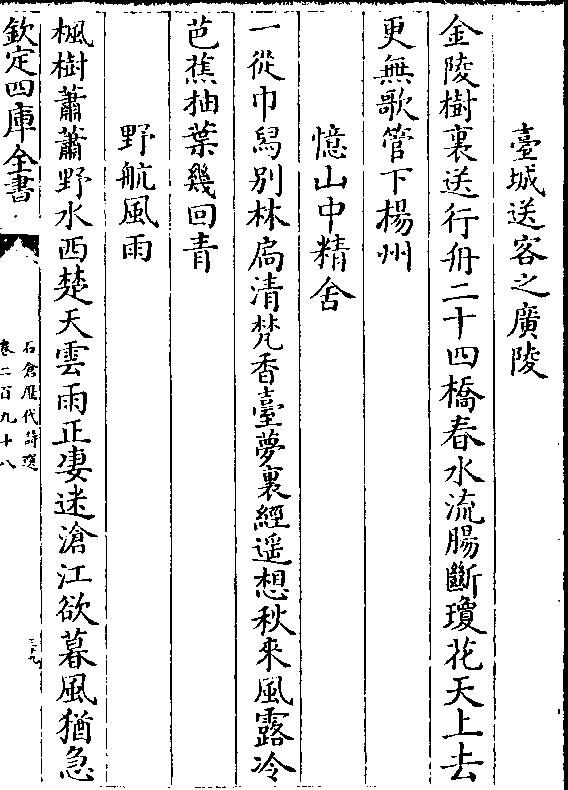 臺城送客之廣陵
金陵樹裏送行舟二十四橋春水流腸斷瓊花天上去
更無歌管下楊州
憶山中精舍
一從巾舄別林扃清梵香臺夢裏經遥想秋來風露冷
芭蕉抽葉幾回青
野航風雨
楓樹蕭蕭野水西楚天雲雨正凄迷滄江欲暮風猶急
欽定四庫全書
石倉歴代詩選
卷二百九十八